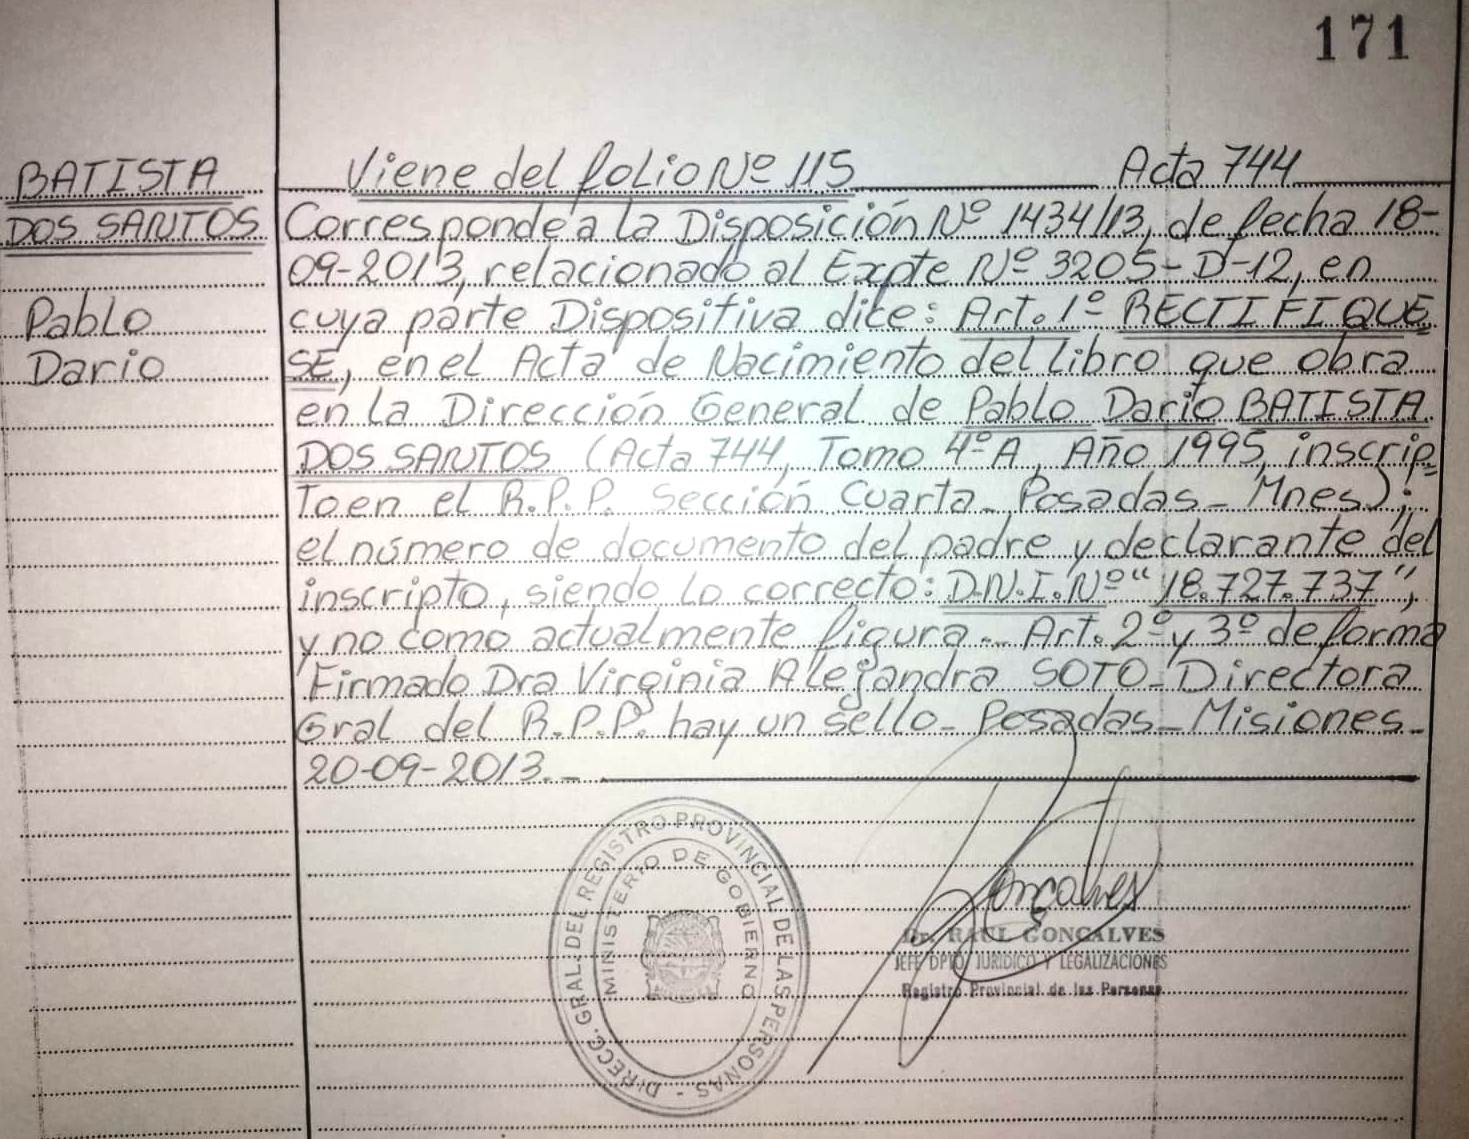 171
BATISTA
DOS SANTOS
Pablo
Dario
Viene del folio Nº 115 Acta 744
Corresponde a la Disposición Nº 1434/13, de fecha 18-
09-2013, relacionado al Expte Nº 3205-D-12, en
cuya parte Dispositiva dice: Art. 1º RECTIFIQUE
SE, en el Acta de Nacimiento del Libro que obra
en la Dirección General de Pablo Dario BATISTA
DOS SANTOS (Acta 744, Tomo 4º A, Año 1995, inscrip=
to en el R.P.P. Sección Cuarta_ Posadas_ Mnes);
el número de documento del padre y declarante del
inscripto, siendo lo correcto: D.N.I. Nº "18.727.737",
y no como actualmente figura._ Art. 2º y 3º de forma
Firmado Dra Virginia Alejandra SOTO_ Directora
Gral del R.P.P. hay un sello_ Posadas_ Misiones_
20-09-2013._
DIRECC. GRAL. DEL REGISTRO PROVINCIAL DE LAS PERSONAS -
MINISTERIO DE GOBIERNO
Goncalves
Dr. RAUL GONCALVES
JEFE DPTO. JURIDICO Y LEGALIZACIONES
Registro Provincial de las Personas